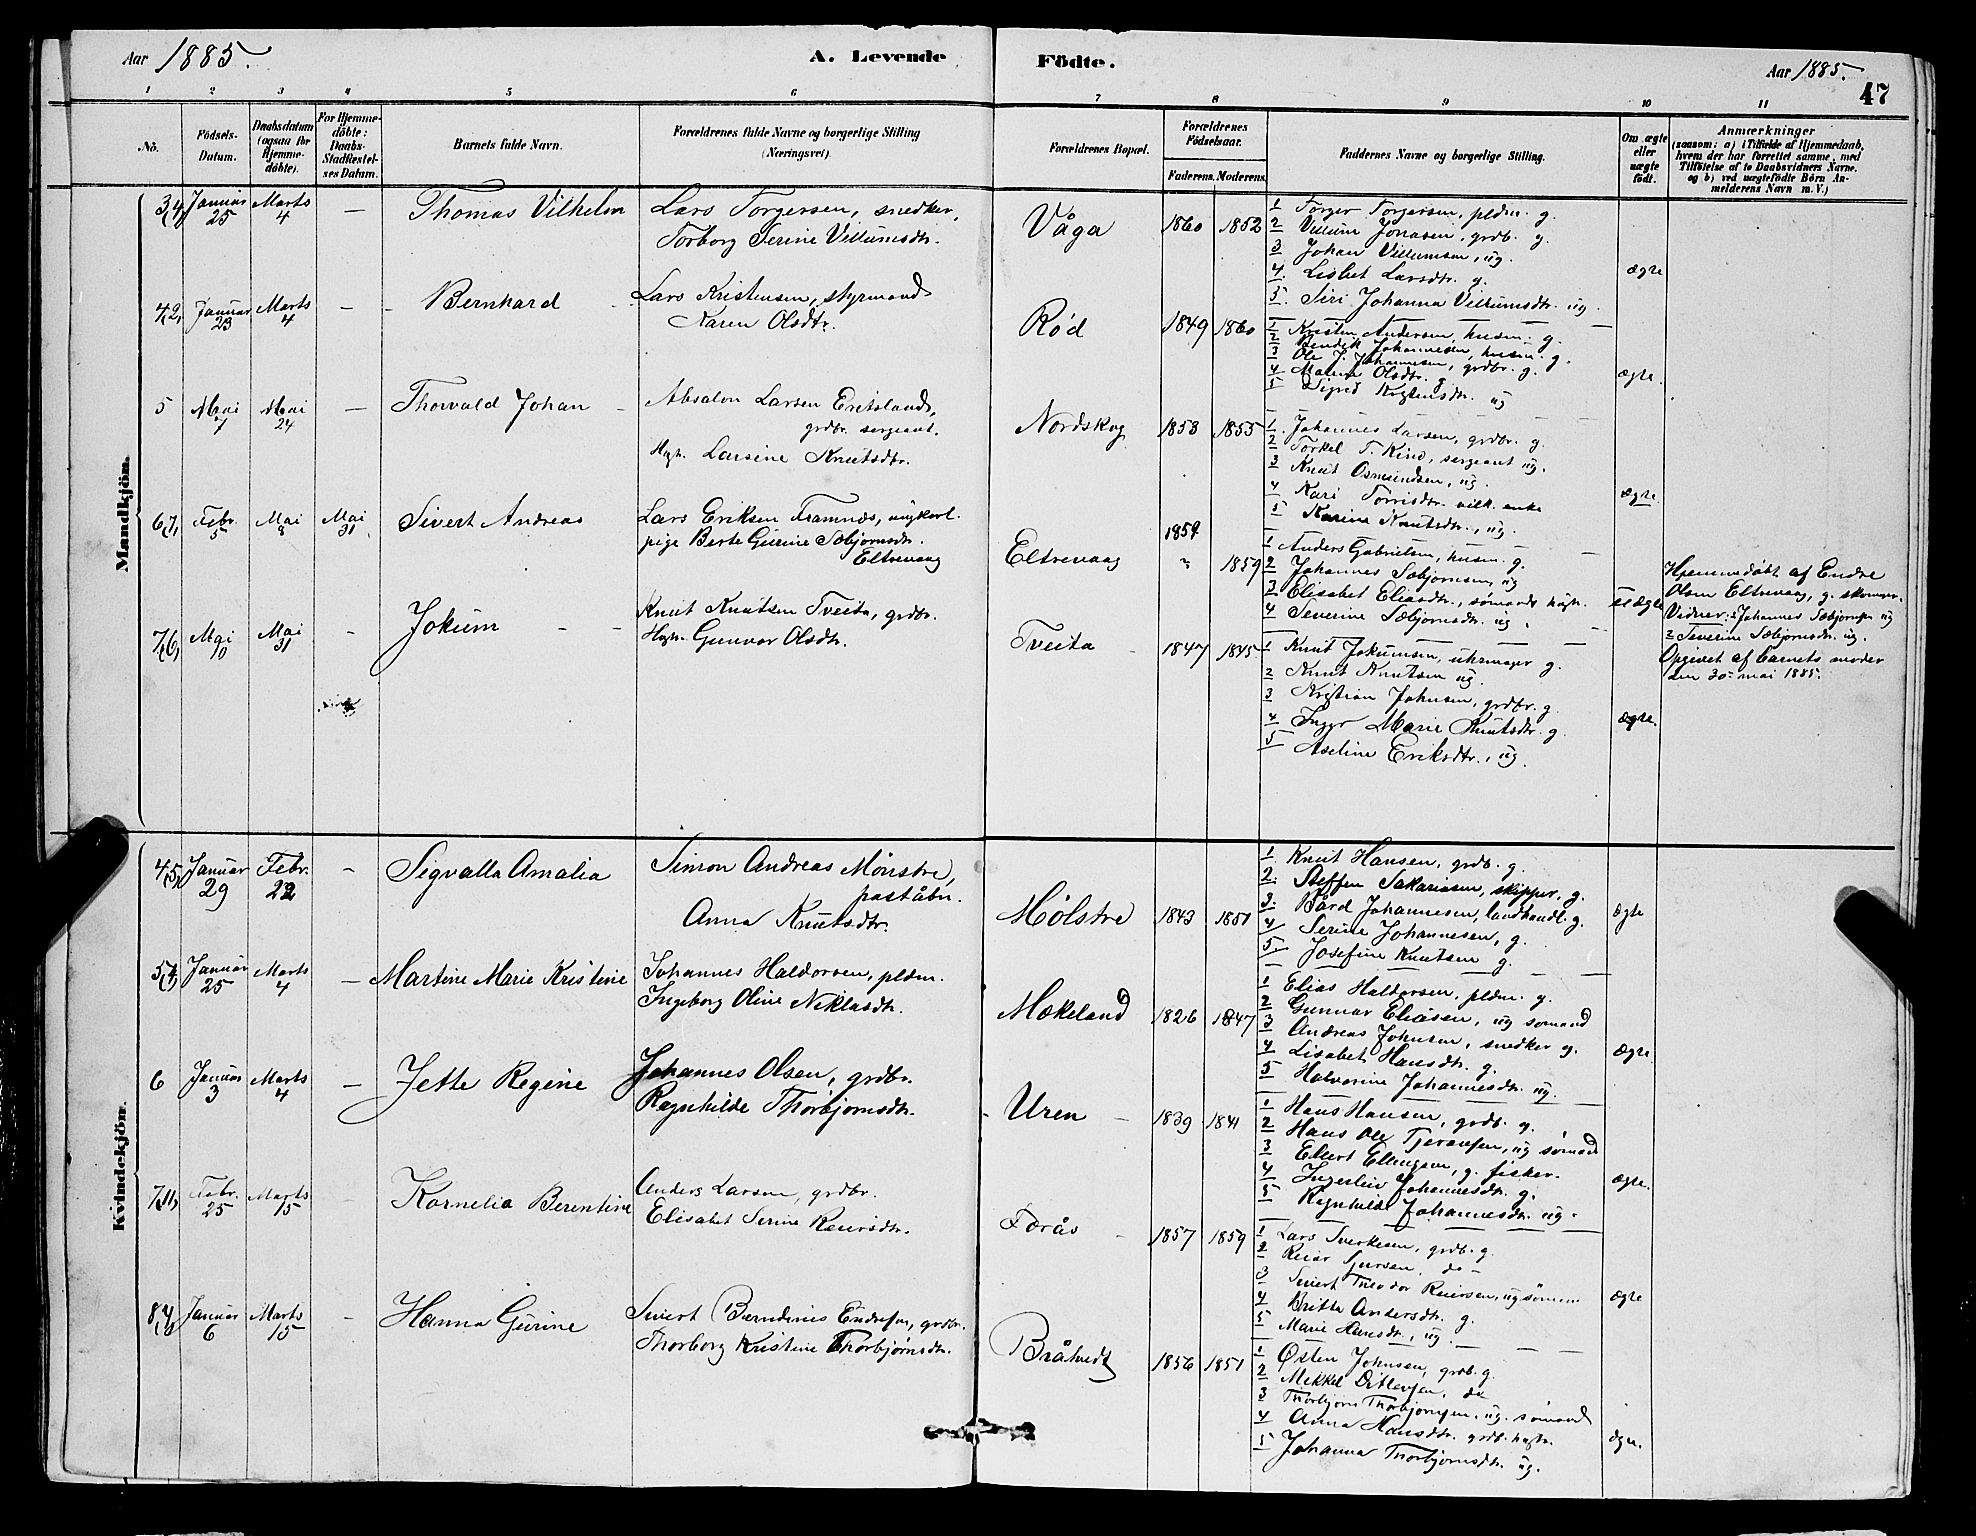 Aar 1885.
A. Levende Födte.
Aar 1885.
47
1 2 3 4 5 6 7 8 9 10 11
No.
Födsels-Datum.
Daabsdatum (ogsaa för Hjemme-döbte).
For Hjemme-döbte: Daabs-Stadfæstel-ses Datum.
Barnets fulde Navn.
Forældrenes fulde Navne og borgerlige Stilling (Næringsvei).
Forældrenes Bopæl.
Forældrenes Födselsaar.
Faderens. Moderens.
Faddernes Navne og borgerlige Stilling.
Om ægte eller uægte födt.
Anmærkninger
(saasom: a) i Tilfælde af Hjemmedaab, hvem der har forrettet samme, med Tilföielse af to Daabsvidners Navne. og b) ved uægtefödte Börn An-melderens Navn m. V.)
Mandkjön.
Januar 25
Marts 4
—
Thomas Vilhelm
Lars Torgersen, snedker,
Torborg Serine Villumsdtr.
Våga
1860 1852
1 Torger Torgersen, pldm. g.
2 Villum Jonasen, grdb. g.
3 Johan Villumsen, ug.
4. Lisbet Larsdtr. g.
5. Siri Johanna Villumsdtr. ug.
ægte
Januar 23
Marts 4
—
Bernhard
Lars Kristensen, styrmand
Karen Olsdtr.
Rød
1849 1860
1 Kristen Andersen, husm. g.
2 Bendik Johannesen, husm. g.
3 Ole J. Johannesen, grdbr. g.
4 Malene Olsdtr. g.
5 Sigrid Kristensdtr. ug
ægte.
5
Mai 7
Mai 24
—
Thorvald Johan
Absalon Larsen Eritslands,
grdbr. sergeant.
Hgh. Larsine Knutsdtr.
Nordskog
1853 1855
1. Johannes Larsen, grdbr. g.
2 Torkel T. Kind, sergeant ug.
3 Knut Osmundsen, ug.
4 Kari Torrisdtr. vilk. enke
5 Karine Knutsdtr., ug.
ægte.
Febr. 5
Mai 8
Mai 31
Sivert Andreas
Lars Eriksen Framnæs, ungkarl.
pige Berte Gurine Sæbjørnsdtr.
Eltrevaag
Eltrevaag
1859
" 1859
1 Anders Gabrielsen, husm. g.
2 Johannes Sæbjørnsen, ug
3 Elisabet Eliasdtr., sømands hgh.
4 Severine Sæbjørnsdtr. ug.
uægte
Hjemmedøbt af Endre
Olsen Eltrevaag, g. skomager.
Vidner: 1 Johannes Sæbjørnsen ug
2 Severine Sæbjørnsdtr. ug.
Opgivet af barnets moder
den 30te mai 1885.
Mai 10
Mai 31
-
Jokum
Knut Knutsen Tveita, grdbr.
Hgh. Gunvor Olsdtr.
Tveita
1847 1845
1 Knut Jokumsen, uhrmager g.
2 Knut Knutsen ug.
3 Kristian Johnsen, grdbr. g.
4 Inger Marie Knutsdtr. g.
5 Axeline Eriksdtr., ug.
ægte.
Kvindekjön.
Januar 29
Febr. 22
-
Sigvalla Amalia
Simon Andreas Mönstre,
poståbn.
Anna Knutsdtr.
Mølstre
1843 1851
1. Knut Hansen, grdb. g.
2. Steffen Sakariasen, skipper, g.
3. Bård Johannesen, landhandl. g.
4 Serine Johannesen, g.
5. Josefine Knutsen g.
ægte
Januar 25
Marts 4
—
Martine Marie Kristine
Johannes Haldorsen, pldm.
Ingeborg Oline Niklasdtr.
Mækeland
1826 1847
1 Elias Haldorsen, pldm. g.
2 Gunnar Eliasen, ug sømand
3 Andreas Johnsen, snedker g.
4 Lisabet Hansdtr. g.
5 Halvorine Johannesdtr. ug.
ægte.
6
Januar 3
Marts 4
—
Jette Regine
Johannes Olsen, grdbr.
Ragnhilde Thorbjørnsdtr.
Uren
1839 1841
1 Hans Hansen, grdb. g.
2 Hans Ole Tjeransen, ug sømand
3 Ellert Ellingsen, g. fisker.
4 Ingerleiv Johannesdtr. g.
5 Ragnhilde Johannesdtr. ug.
ægte.
Febr. 25
Marts 15
Kornelia Berentine
Anders Larsen, grdbr.
Elisabet Serine Reiersdtr.
Førås
1857 1859
1 Lars Sverkesen, grdb. g.
2 Reier Sjursen, do -
3 Sivert Theodor Reiersen, ug sömm.
4 Britte Andersdtr. g.
5 Marie Hansdtr., ug.
ægte
Januar 6
Marts 15
-
Hanna Gurine
Sivert Berndinus Endresen, grdbr.
Thorborg Kristine Thorbjørnsdtr.
Bråtvedt
1856 1851
1 Østen Johnsen, grdb. g.
2 Mikkel Ditlevsen, do
3 Thorbjørn Thorbjørnsen, ug. sømand
4 Anna Hansdtr. grdb. hgh.
5 Johanna Thorbjørnsdtr. ug.
ægte.